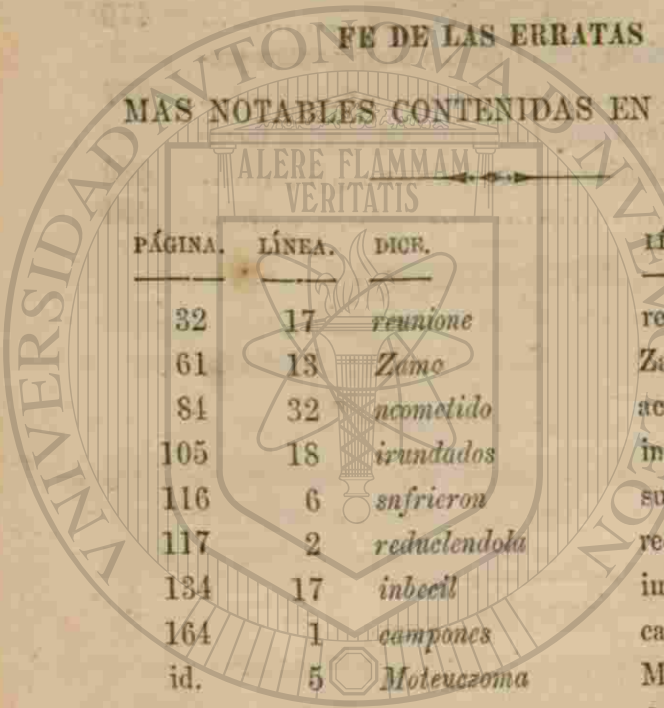 FE DE LAS ERRATAS
MAS NOTABLES CONTENIDAS EN
ALERE FLAMMAM
VERITATIS
UNIVERSIDAD AVTONOMA D
PÁGINA. LÍNEA. DICE.
32 17 reunione re
61 13 Zamo Za
84 32 ncometido ac
105 18 irundados in
116 6 snfrieron su
117 2 reduclendola re
134 17 inbecil im
164 1 campones ca
id. 5 Moteuczoma M